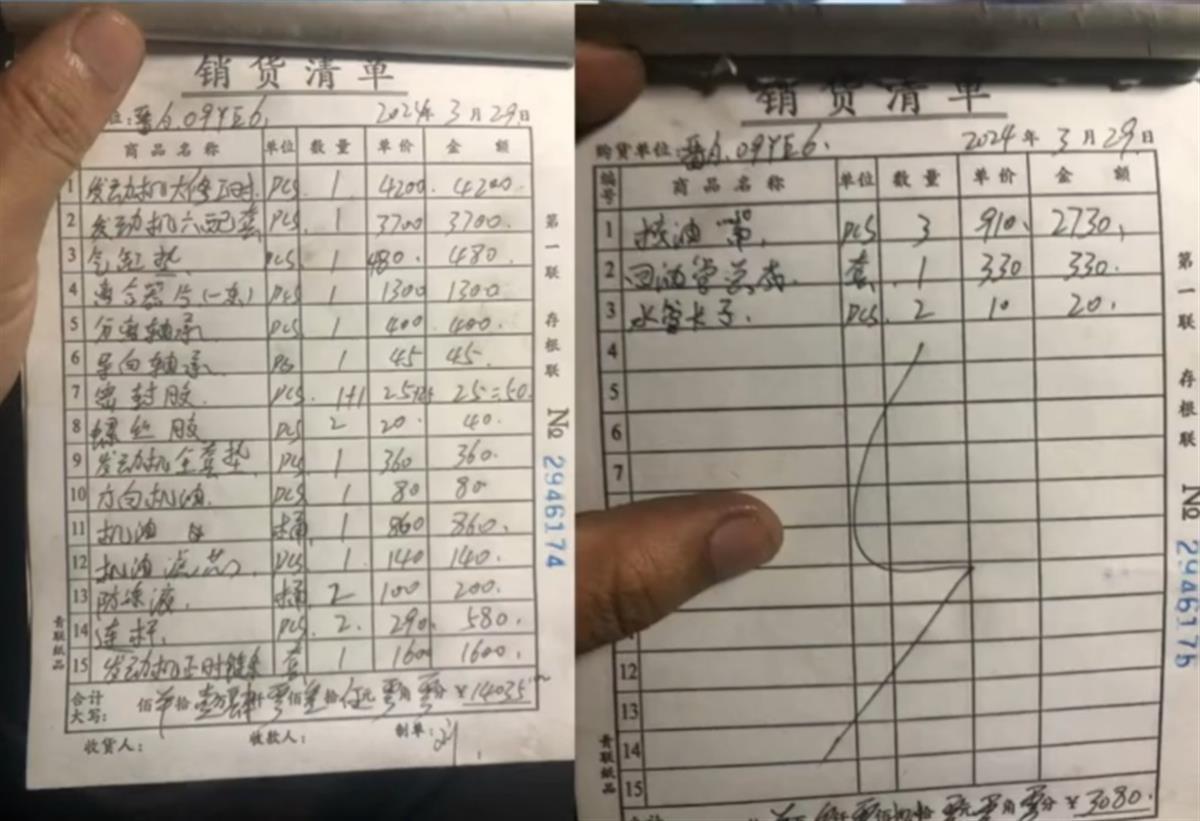 销货清单
位: 晋A.09YE6. 2024年 3月29日
商品名称 单位 数量 单价 金额
1 发动机大修工时. PCS. 1 4200. 4200.
2 发动机六配套 PCS. 1 3700 3700.
3 气缸垫. PCS. 1 480. 480.
4 离合器片(一套) PCS 1 1300 1300.
5 分离轴承 PCS 1 400. 400.
6 导向轴承 PCS 1 45 45.
7 密封胶. PCS. 1+1 25 25=50.
8 螺丝胶 PCS 2 20. 40.
9 发动机全套垫. PCS. 1 360 360.
10 方向机油. PCS. 1 80 80
11 机油 桶. 1 860 860.
12 机油滤芯. PCS 1. 140 140.
13 防冻液. 桶. 2 100 200.
14 连杆. PCS. 2. 290. 580.
15 发动机正时链条 套. 1 1600 1600.
合计大写: 佰 拾壹万肆仟零佰叁拾伍元零角零分 ¥14035
收货人: 收款人: 制单:
第一联 存根联 № 2946174
青联纸品
销货清单
购货单位: 晋A.09YE6. 2024年 3月29日
编号 商品名称 单位 数量 单价 金额
1 PCS 3 910. 2730.
2 回油管总成. 套. 1 330 330.
3 水管卡子. PCS. 2 10 20.
4
5
6
7
12
13
14
15
零元零角零分 ¥3080.
第一联 存根联 № 2946175
青联纸品